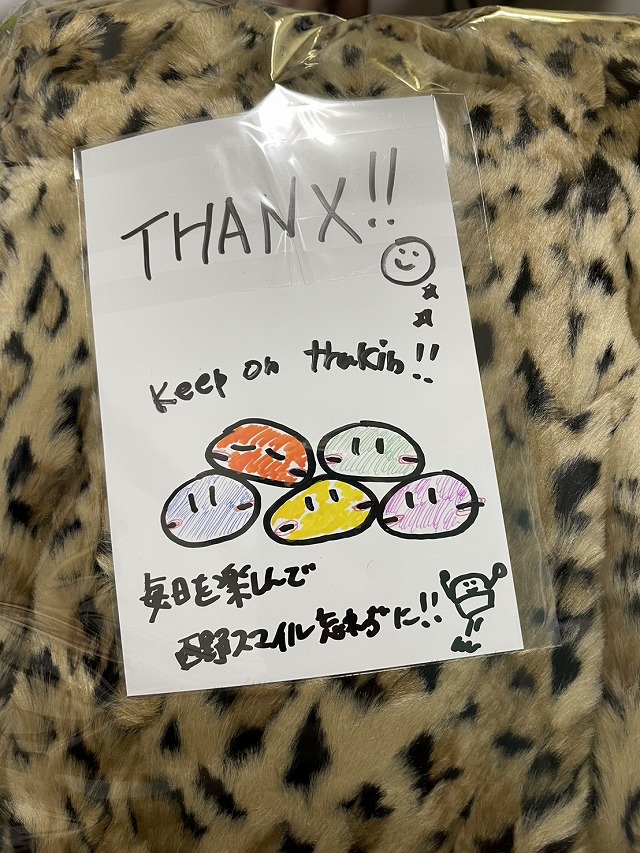 THANX!!
Keep on thakin!!
毎日を楽しんで
西野スマイル忘れずに!!